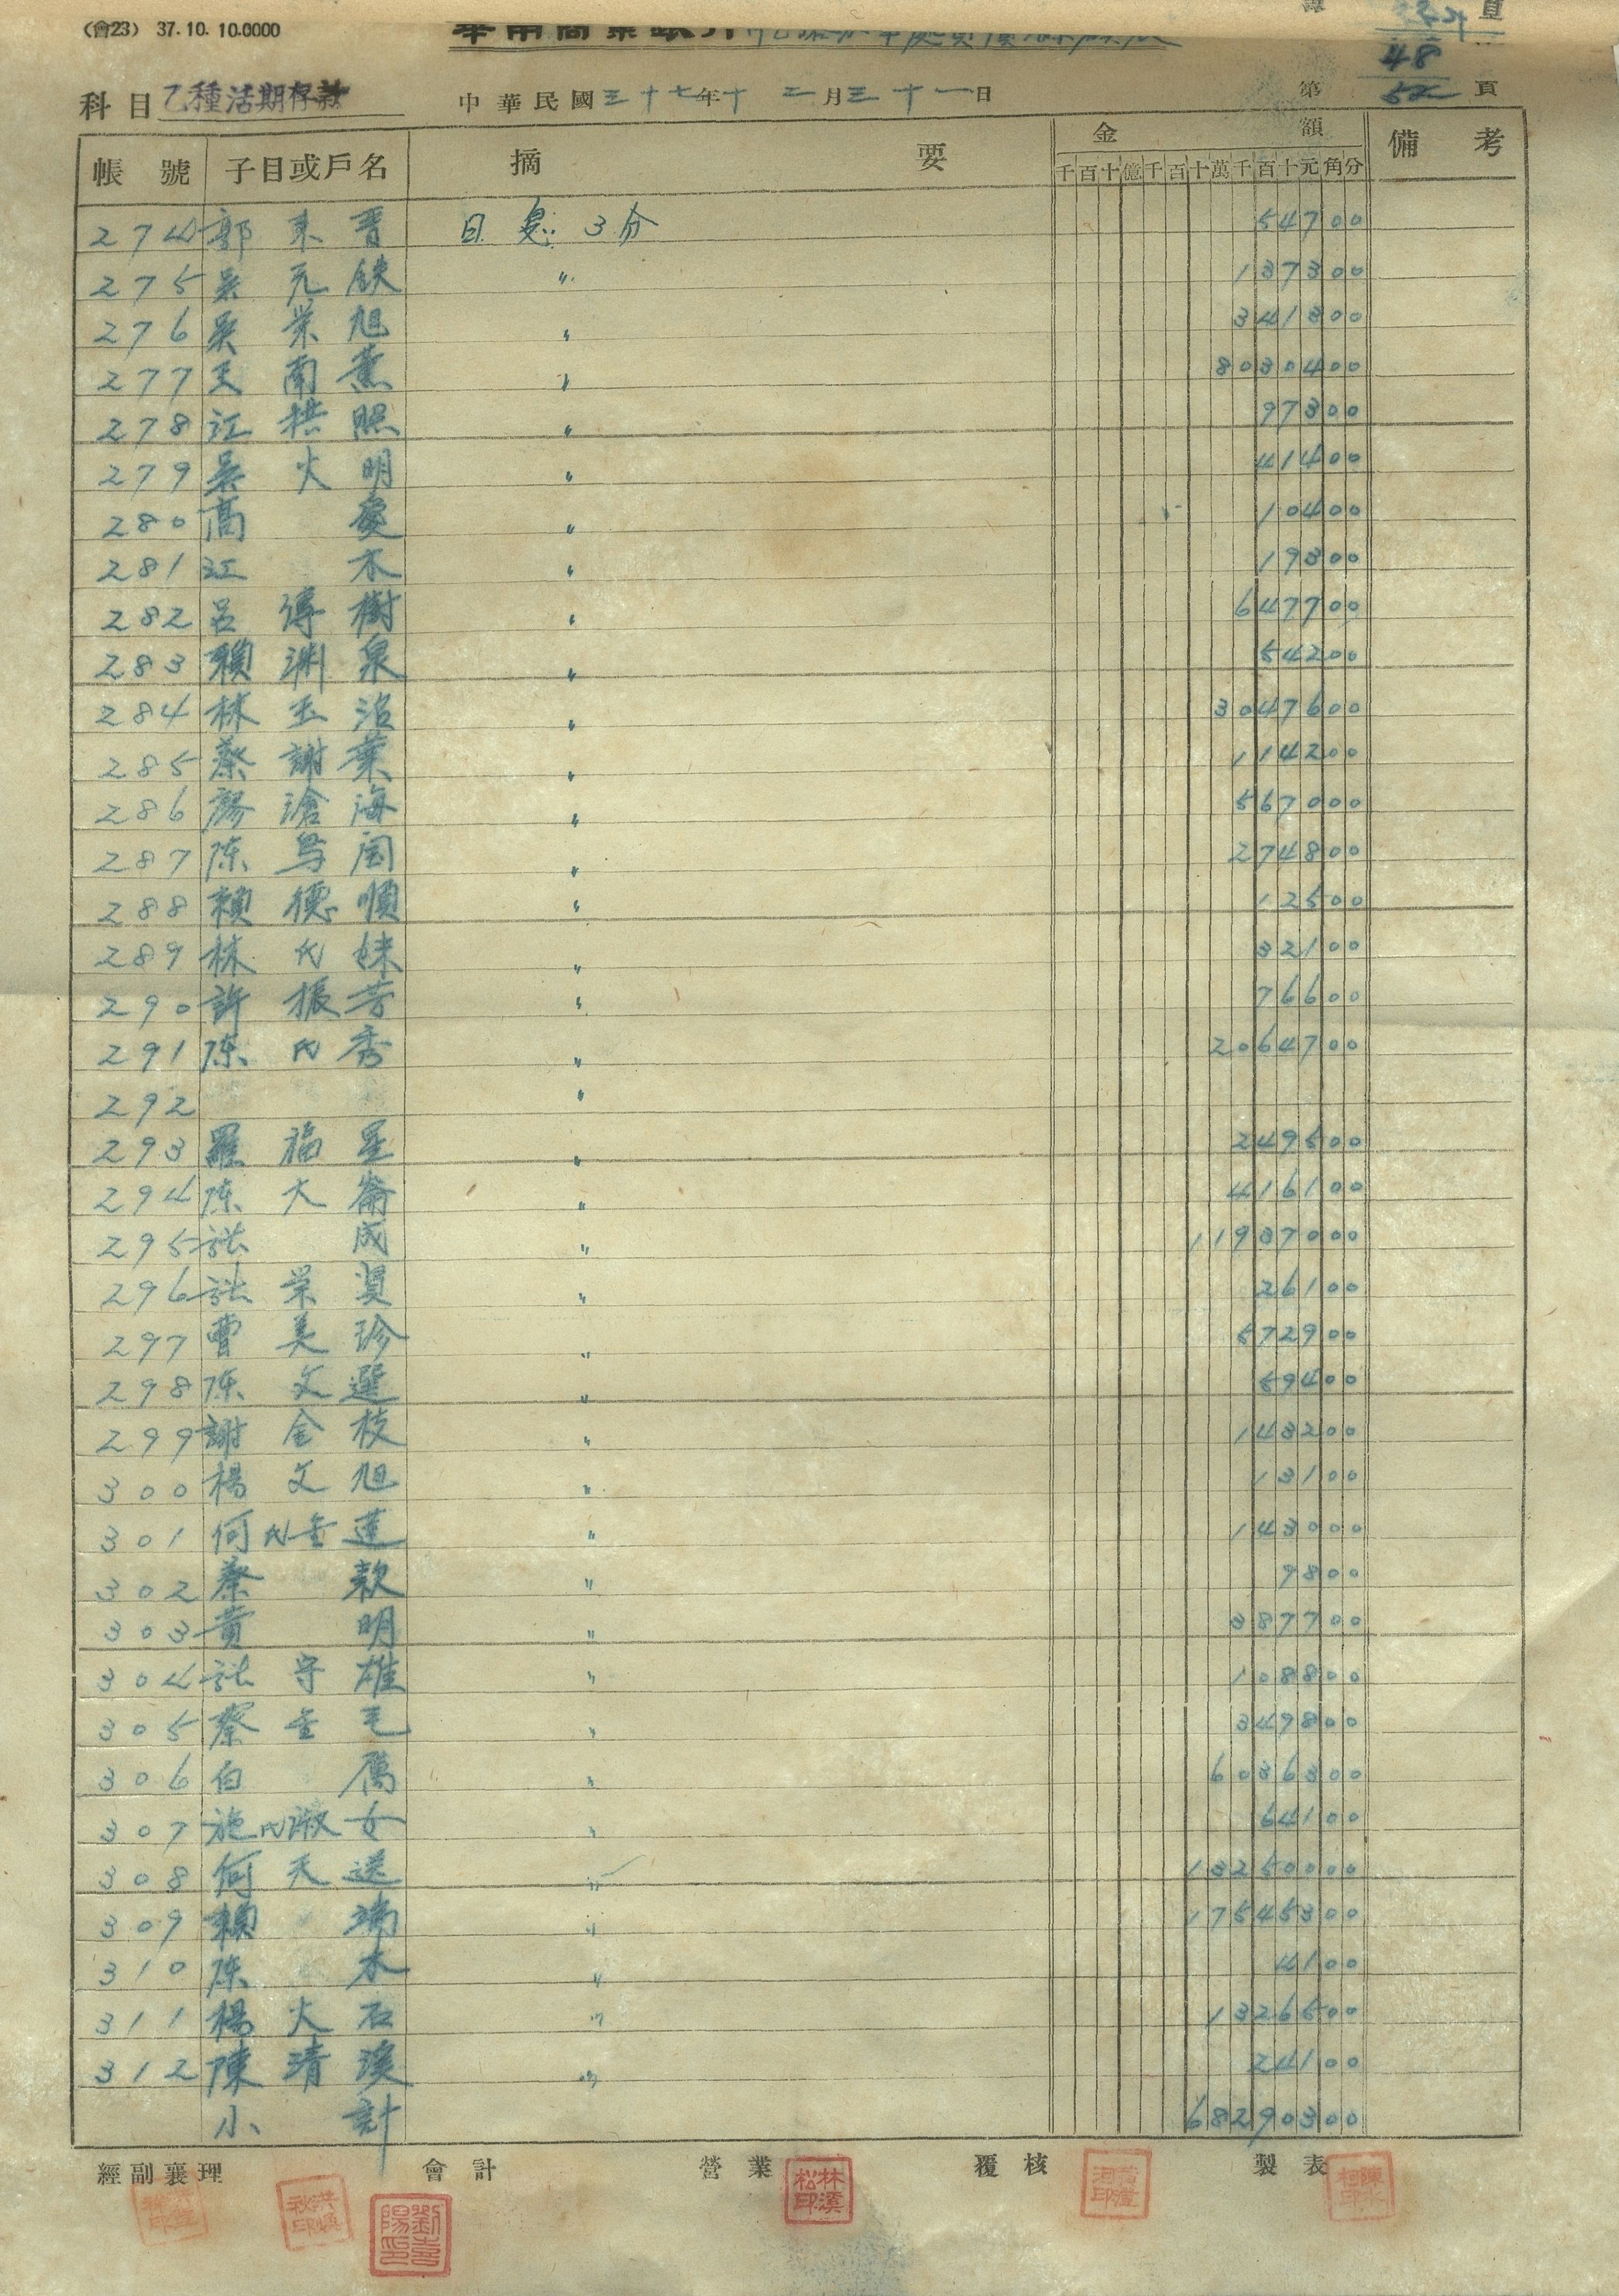 (會23) 37.10.10.0000
華南商業銀行
48
科目 乙種活期存款 中華民國三十七年十二月三十一日 第 頁
帳號 子目或戶名 摘要 金額 備考
千百十億千百十萬千百十元角分
274 郭東晋 日息 3分 547 00
275 吳元鉄 〃 1373 00
276 吳栄旭 〃 3413 00
277 王南薰 〃 80304 00
278 江拱照 〃 973 00
279 吳火明 〃 414 00
280 高 〃 104 00
281 江木 〃 193 00
282 呂傳樹 〃 6477 00
283 賴渊泉 〃 542 00
284 林玉治 〃 30476 00
285 蔡謝葉 〃 1142 00
286 廖滄海 〃 5670 00
287 陈 〃 2748 00
288 賴德順 〃 125 00
289 林氏妹 〃 321 00
290 許振芳 〃 766 00
291 陈氏秀 〃 20647 00
292 〃
293 羅福星 〃 2495 00
294 陈大崙 〃 4161 00
295 張成 〃 119370 00
296 張栄 〃 261 00
297 曹美珍 〃 5729 00
298 陈文選 〃 594 00
299 謝金枝 〃 1432 00
300 楊文旭 〃 131 00
301 何氏金蓮 〃 1430 00
302 蔡款 〃 98 00
303 黄明 〃 3877 00
304 張守雄 〃 1088 00
305 蔡金毛 〃 3498 00
306 白萬 〃 60363 00
307 施氏淑女 〃 641 00
308 何天送 〃 132500 00
309 賴端 〃 175453 00
310 陈木 〃 41 00
311 楊火石 〃 13265 00
312 陳清溪 〃 241 00
小計 682903 00
經副襄理 會計 營業 覆核 製表
劉喜陽印
林溪松印